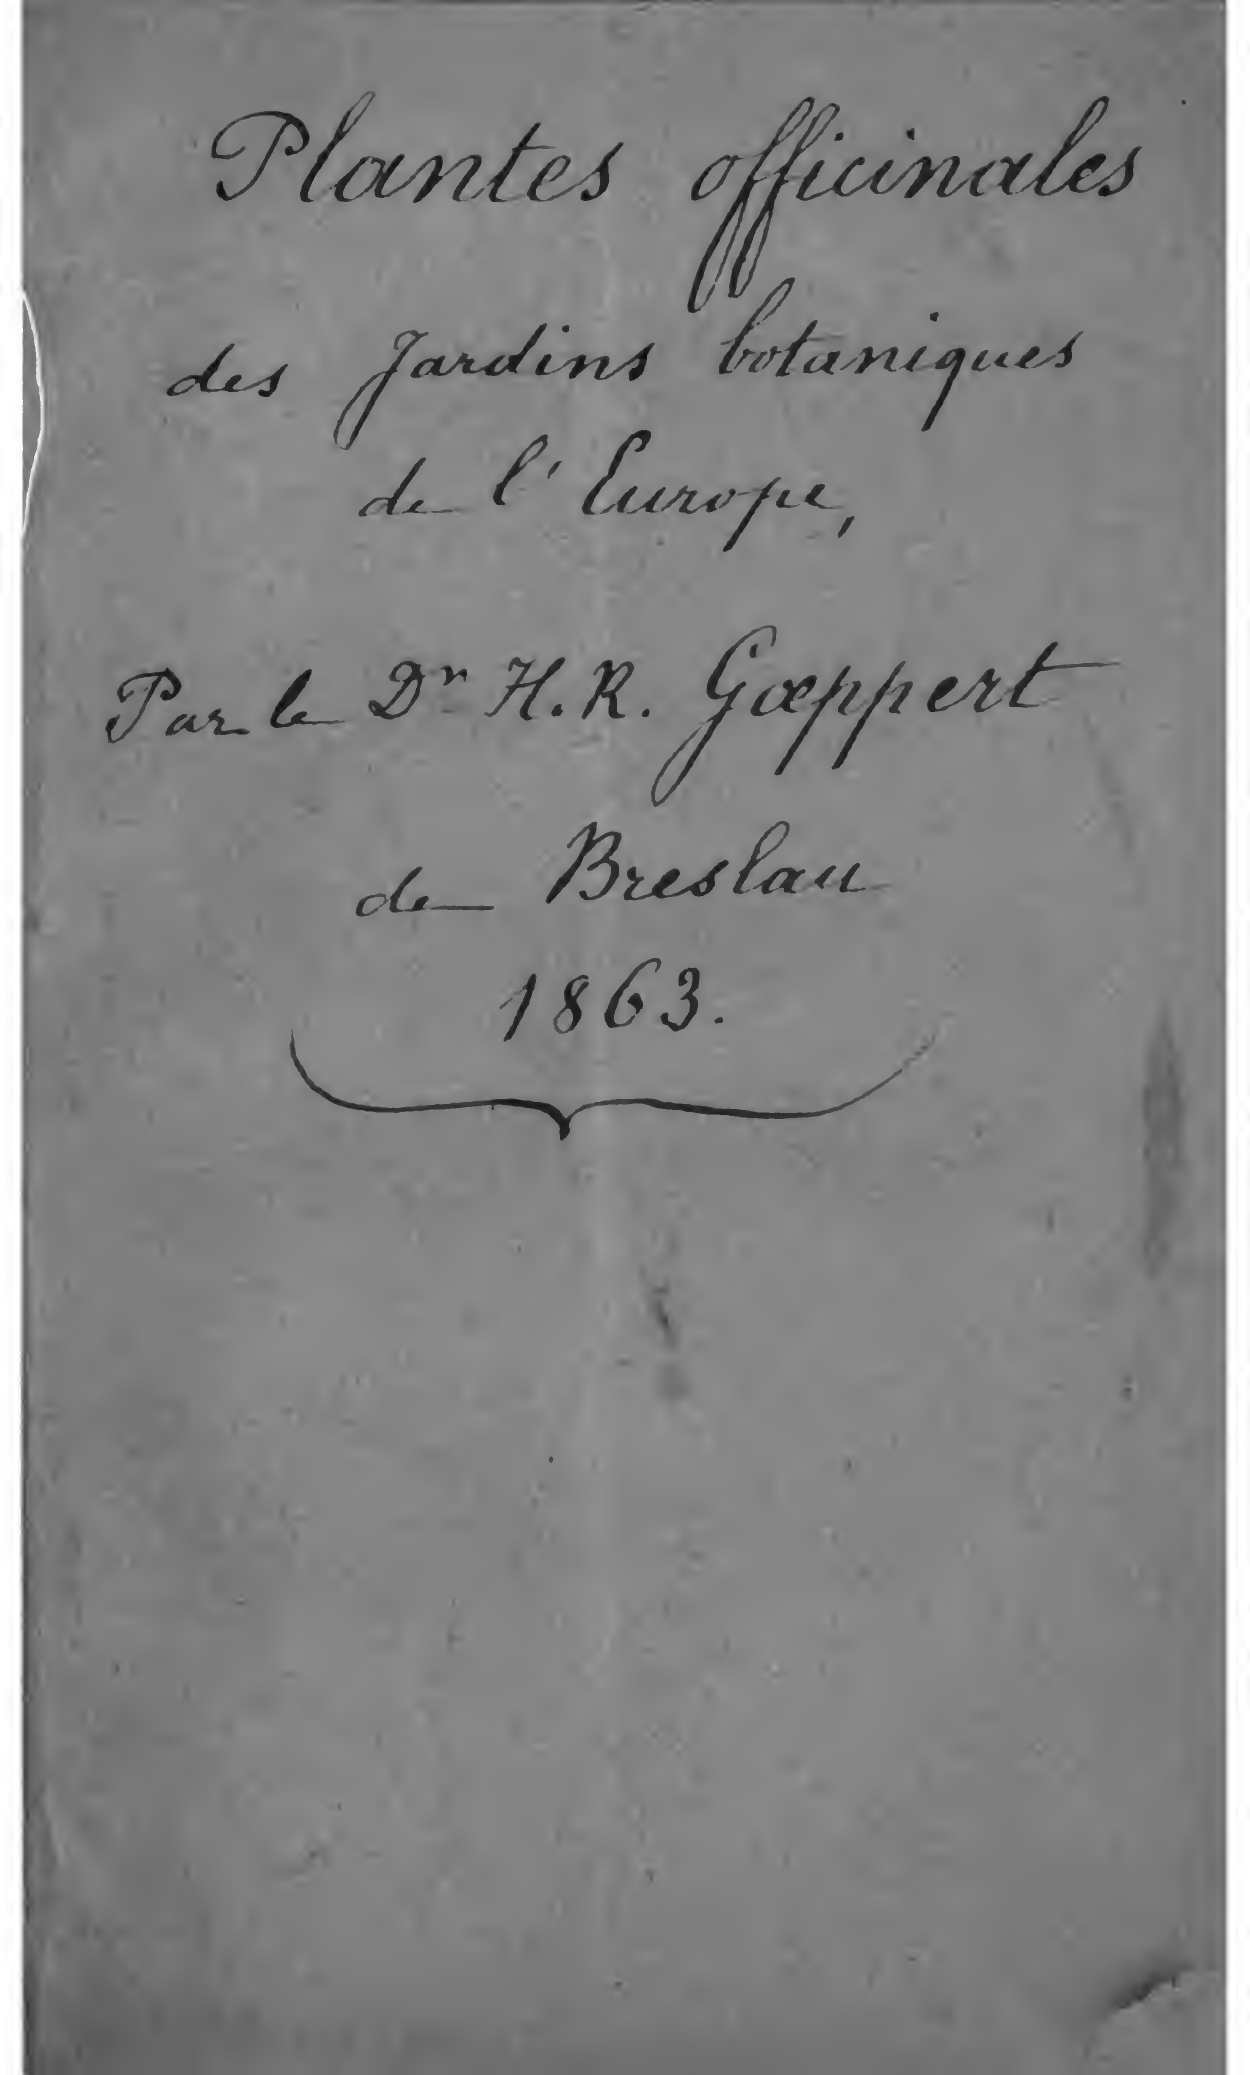 Plantes officinales
des Jardins botaniques
de l'Europe,
Par le Dr H. R. Gœppert
de Breslau
1863.